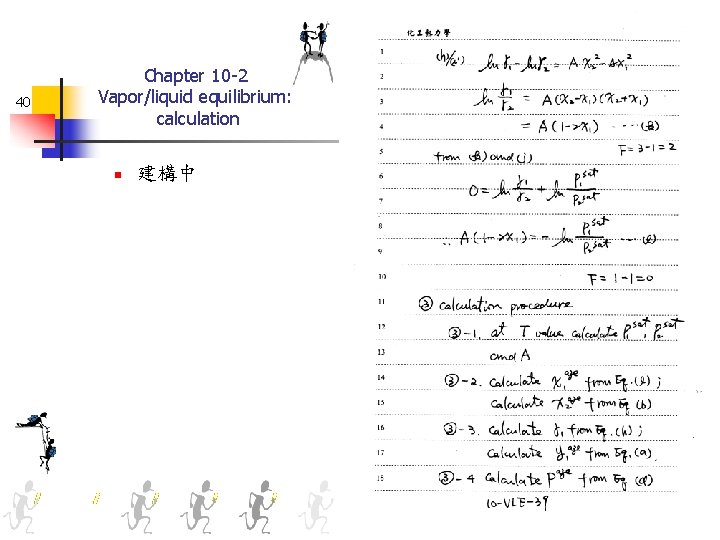 40
Chapter 10-2
Vapor/liquid equilibrium:
calculation
建構中
化工熱力學
1 (h)/(i') ln γ₁ - ln γ₂ = A x₂² - A x₁²
2
3 ln γ₁/γ₂ = A(x₂-x₁)(x₂+x₁)
4 = A(1-2x₁) ---- (k)
5 from (k) and (j) F=3-1=2
6 0 = ln γ₁/γ₂ + ln P₁^sat/P₂^sat
7
8 ∴ A(1-2x₁) = - ln P₁^sat/P₂^sat --- (l)
9
10 F=1-1=0
11 ③ calculation procedure
12 ③-1. at T value calculate P₁^sat, P₂^sat
13 and A
14 ③-2. calculate x₁^aze from Eq.(l) ;
15 calculate x₂^aze from Eq (b)
16 ③-3. calculate γ₁ from Eq.(h) ;
17 calculate y₁^aze from Eq.(a).
18 ③-4 calculate P^aze from Eq (d)
10-VLE-39